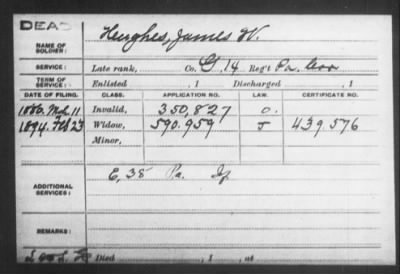 DEAD
NAME OF SOLDIER: Hughes, James W.
SERVICE: Late rank, Co. G, 14 Reg't Pa. Cav
TERM OF SERVICE: Enlisted , 1 Discharged , 1
DATE OF FILING. CLASS. APPLICATION NO. LAW. CERTIFICATE NO.
1886. Mch. 11 Invalid, 350,827 O.
1894. Feb 23 Widow, 590.959 J 439.576
Minor,
ADDITIONAL SERVICES: E, 38 Pa. Inf
REMARKS:
Died , 1 , at